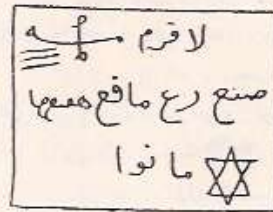 لا قرم
صنع رع ما فع هعها
ما نوا